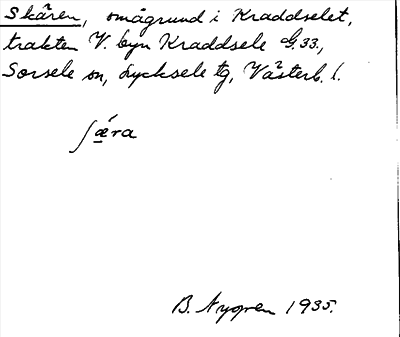 Skären, smågrund i Kraddselet,
trakten V. byn Kraddsele G.33.,
Sorsele sn, Lycksele tg, Västerb. l.
ʃǽra
B. Nygren 1935.